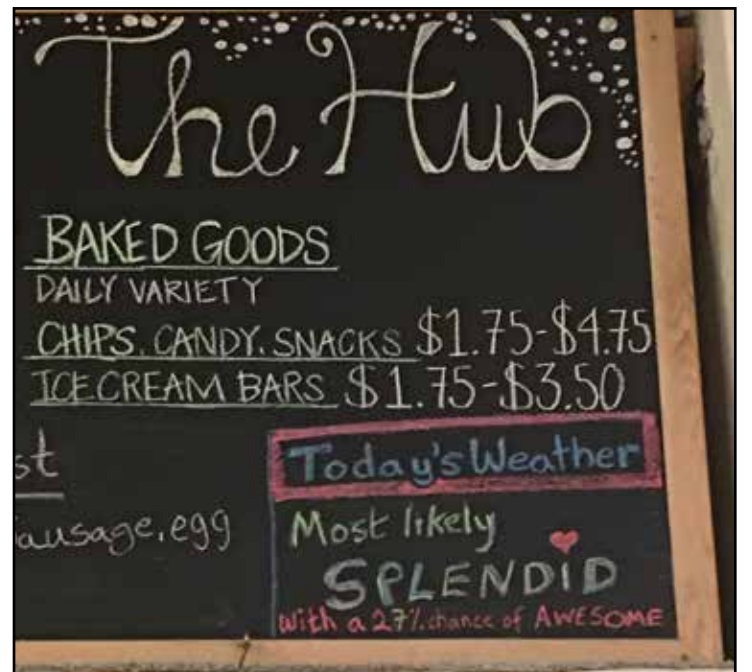 The Hub
BAKED GOODS
DAILY VARIETY
CHIPS, CANDY, SNACKS $1.75-$4.75
ICE CREAM BARS $1.75-$3.50
st
ausage, egg
Today's Weather
Most likely
SPLENDID
with a 27% chance of AWESOME